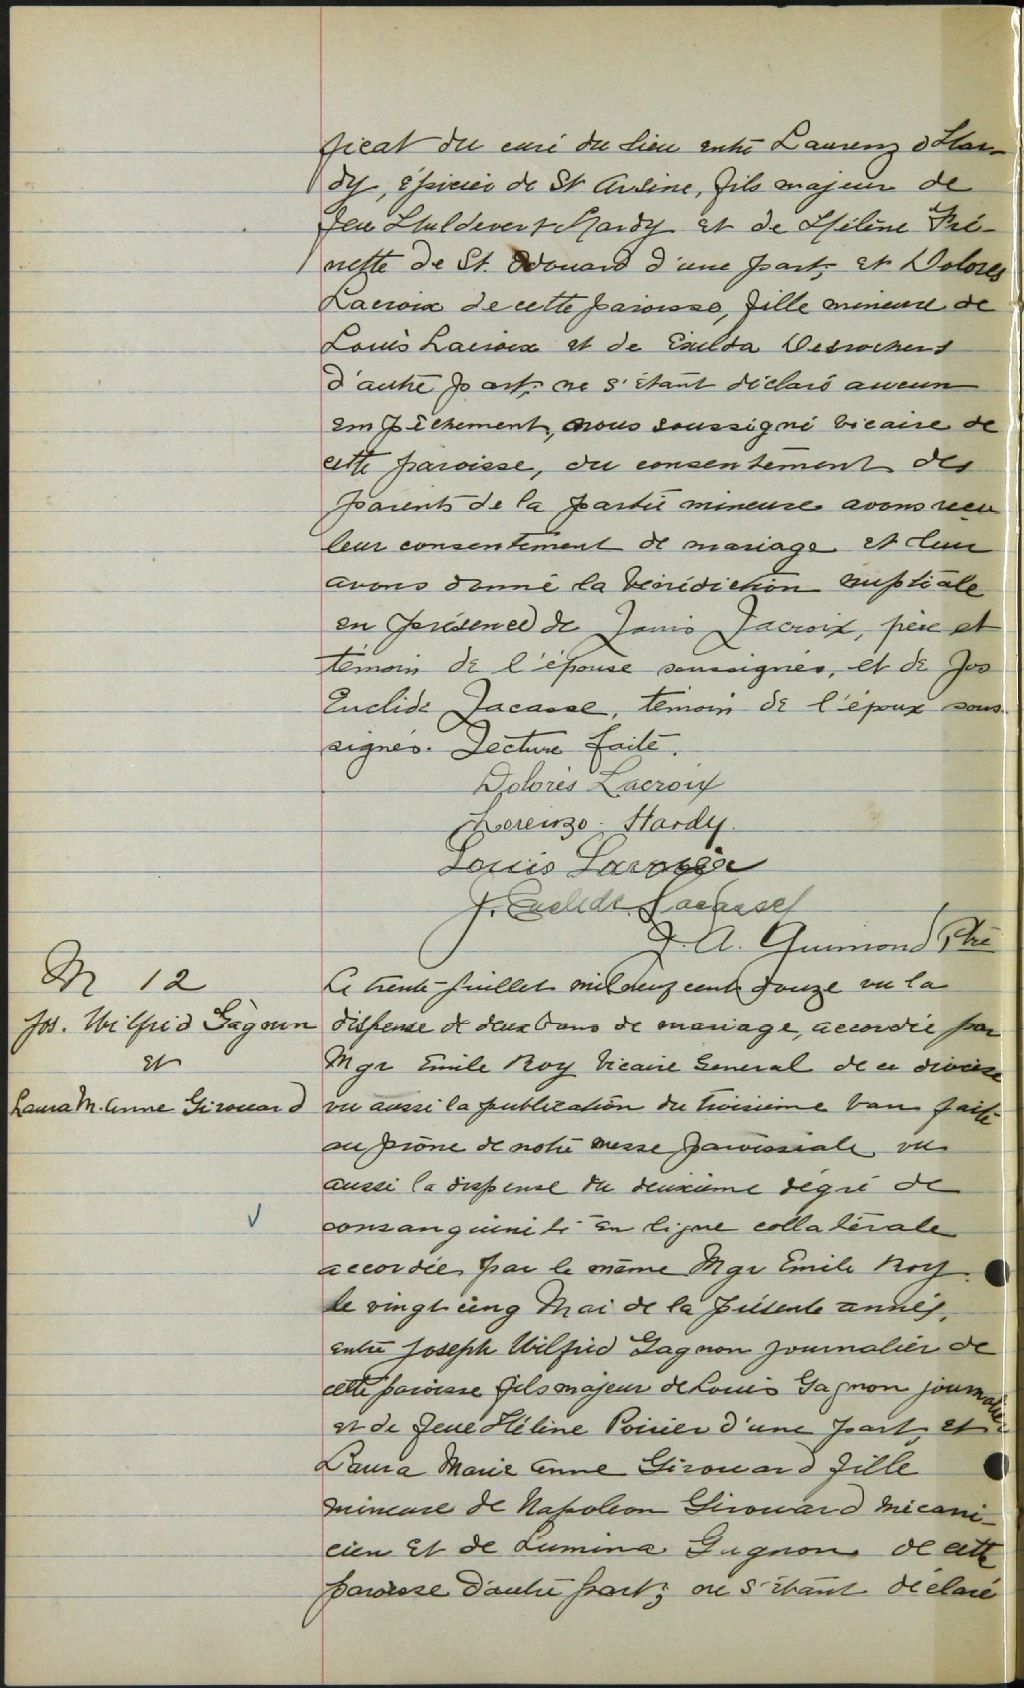 ficat du curé du lieu entre Laurenz o Har-
dy, épicier de St Ausine, fils majeur de
feu Huldevert Hardy et de Hélène Fré-
nette de St. Edouard d'une part; et Dolores
Lacroix de cette paroisse, fille mineure de
Louis Lacroix et de Exilda Desrochers
d'autre part; ne s'étant déclaré aucun
empêchement, nous soussigné vicaire de
cette paroisse, du consentement des
parents de la partie mineure avons reçu
leur consentement de mariage et leur
avons donné la bénédiction nuptiale
en présence de Louis Lacroix, père et
témoin de l'épouse soussignés, et de Jos
Euclide Lacasse, témoin de l'époux sous-
signés. Lecture faite.
Dolorès Lacroix
Lorenzo Hardy.
Louis Lacroix
J. Euclide Lacasse
J. A. Guimond Ptre
M 12
Jos. Wilfrid Gagnon
et
Laura M. Anne Girouard
Le trente Juillet mil neuf cent douze vu la
dispense de deux bans de mariage, accordée par
Mgr Emile Roy Vicaire General de ce diocèse
vu aussi la publication du troisième ban faite
au prône de notre messe paroissiale vu
aussi la dispense du deuxième dégré de
consanguinité en ligne collatérale
accordée par le même Mgr Emile Roy.
le vingt cinq Mai de la présente année,
entre Joseph Wilfrid Gagnon journalier de
cette paroisse fils majeur de Louis Gagnon journalier
et de feue Hélène Poirier d'une part, et
Laura Marie Anne Girouard fille
mineure de Napoleon Girouard mécani-
cien et de Lumina Gagnon de cette
paroisse d'autre part; ne s'étant déclaré